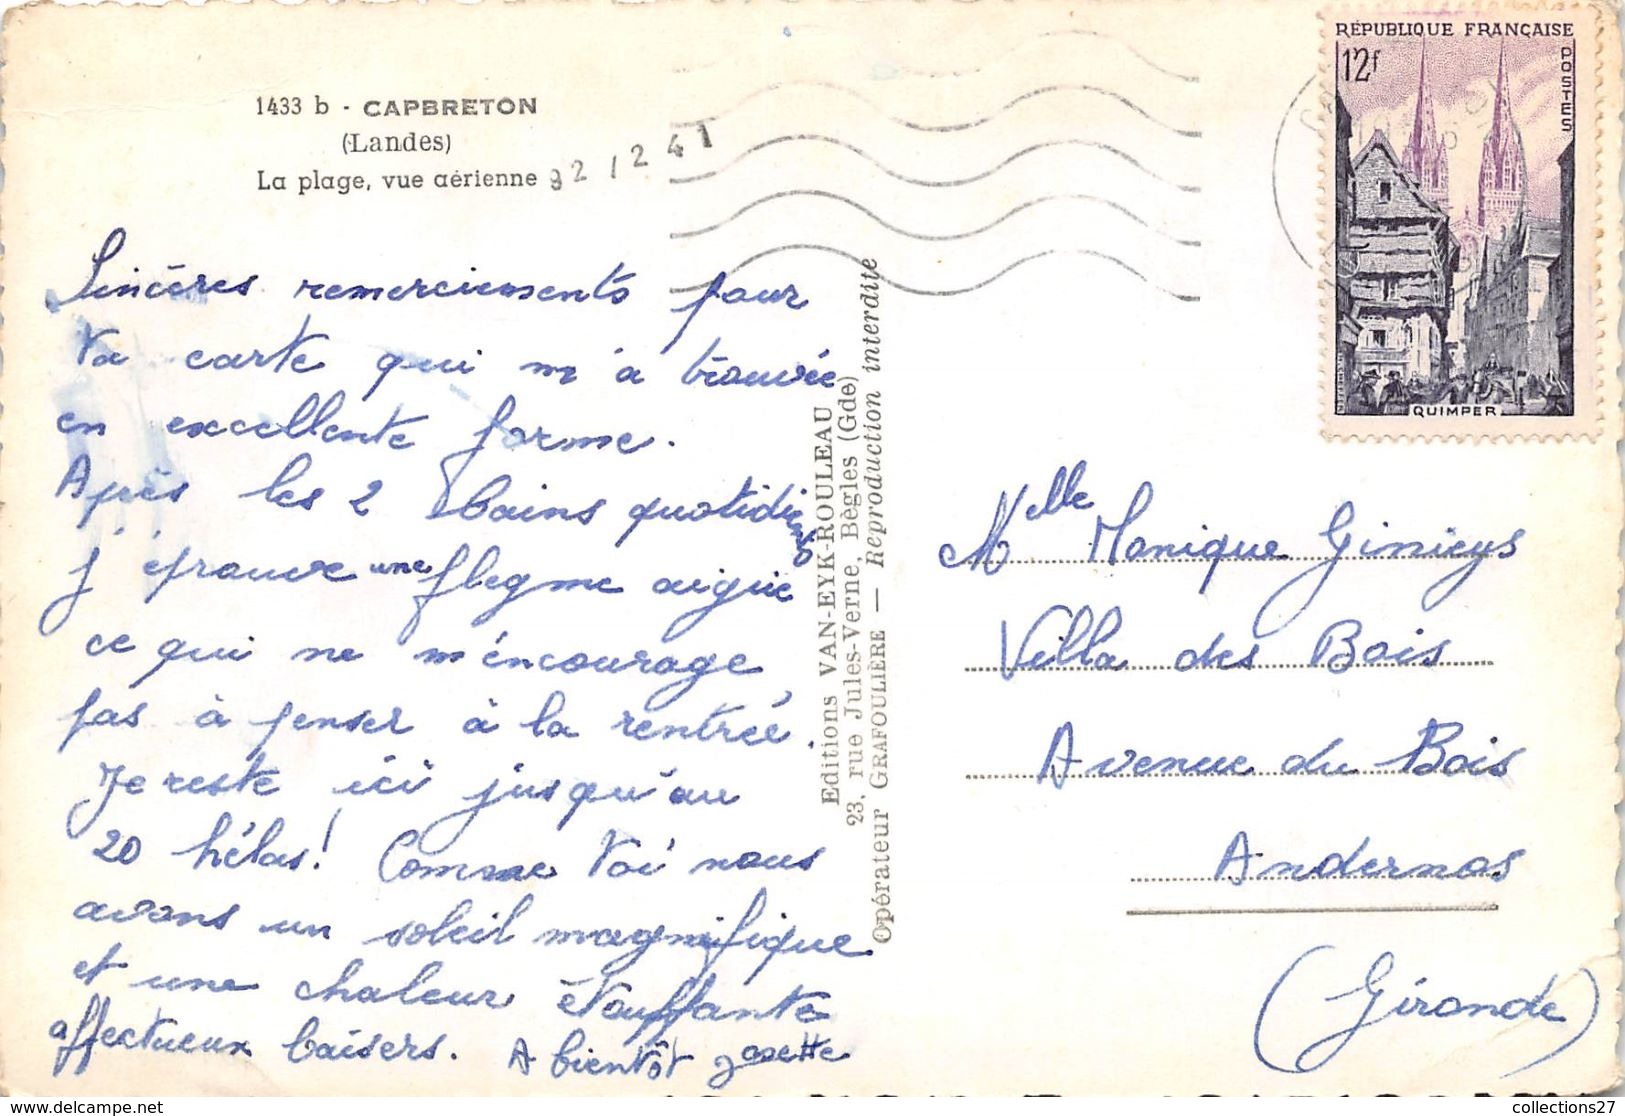 1433 b - CAPBRETON
(Landes)
La plage, vue aérienne
92 / 241
Sincères remerciements pour
Ta carte qui m'a trouvée
en excellente forme.
Après les 2 bains quotidiens
j'éprouve une flegme aigüe
ce qui ne m'encourage
pas à penser à la rentrée.
Je reste ici jusqu'au
20 hélas! Comme Toi nous
avons un soleil magnifique
et une chaleur étouffante
affectueux baisers. A bientôt Josette
Editions VAN-EYK-ROULEAU
23, rue Jules-Verne, Bègles (Gde)
Opérateur GRAFOULIÈRE — Reproduction interdite
RÉPUBLIQUE FRANÇAISE
12f
POSTES
QUIMPER
Melle Monique Ginieys
Villa des Bois
Avenue du Bois
Andernos
(Gironde)
collections27